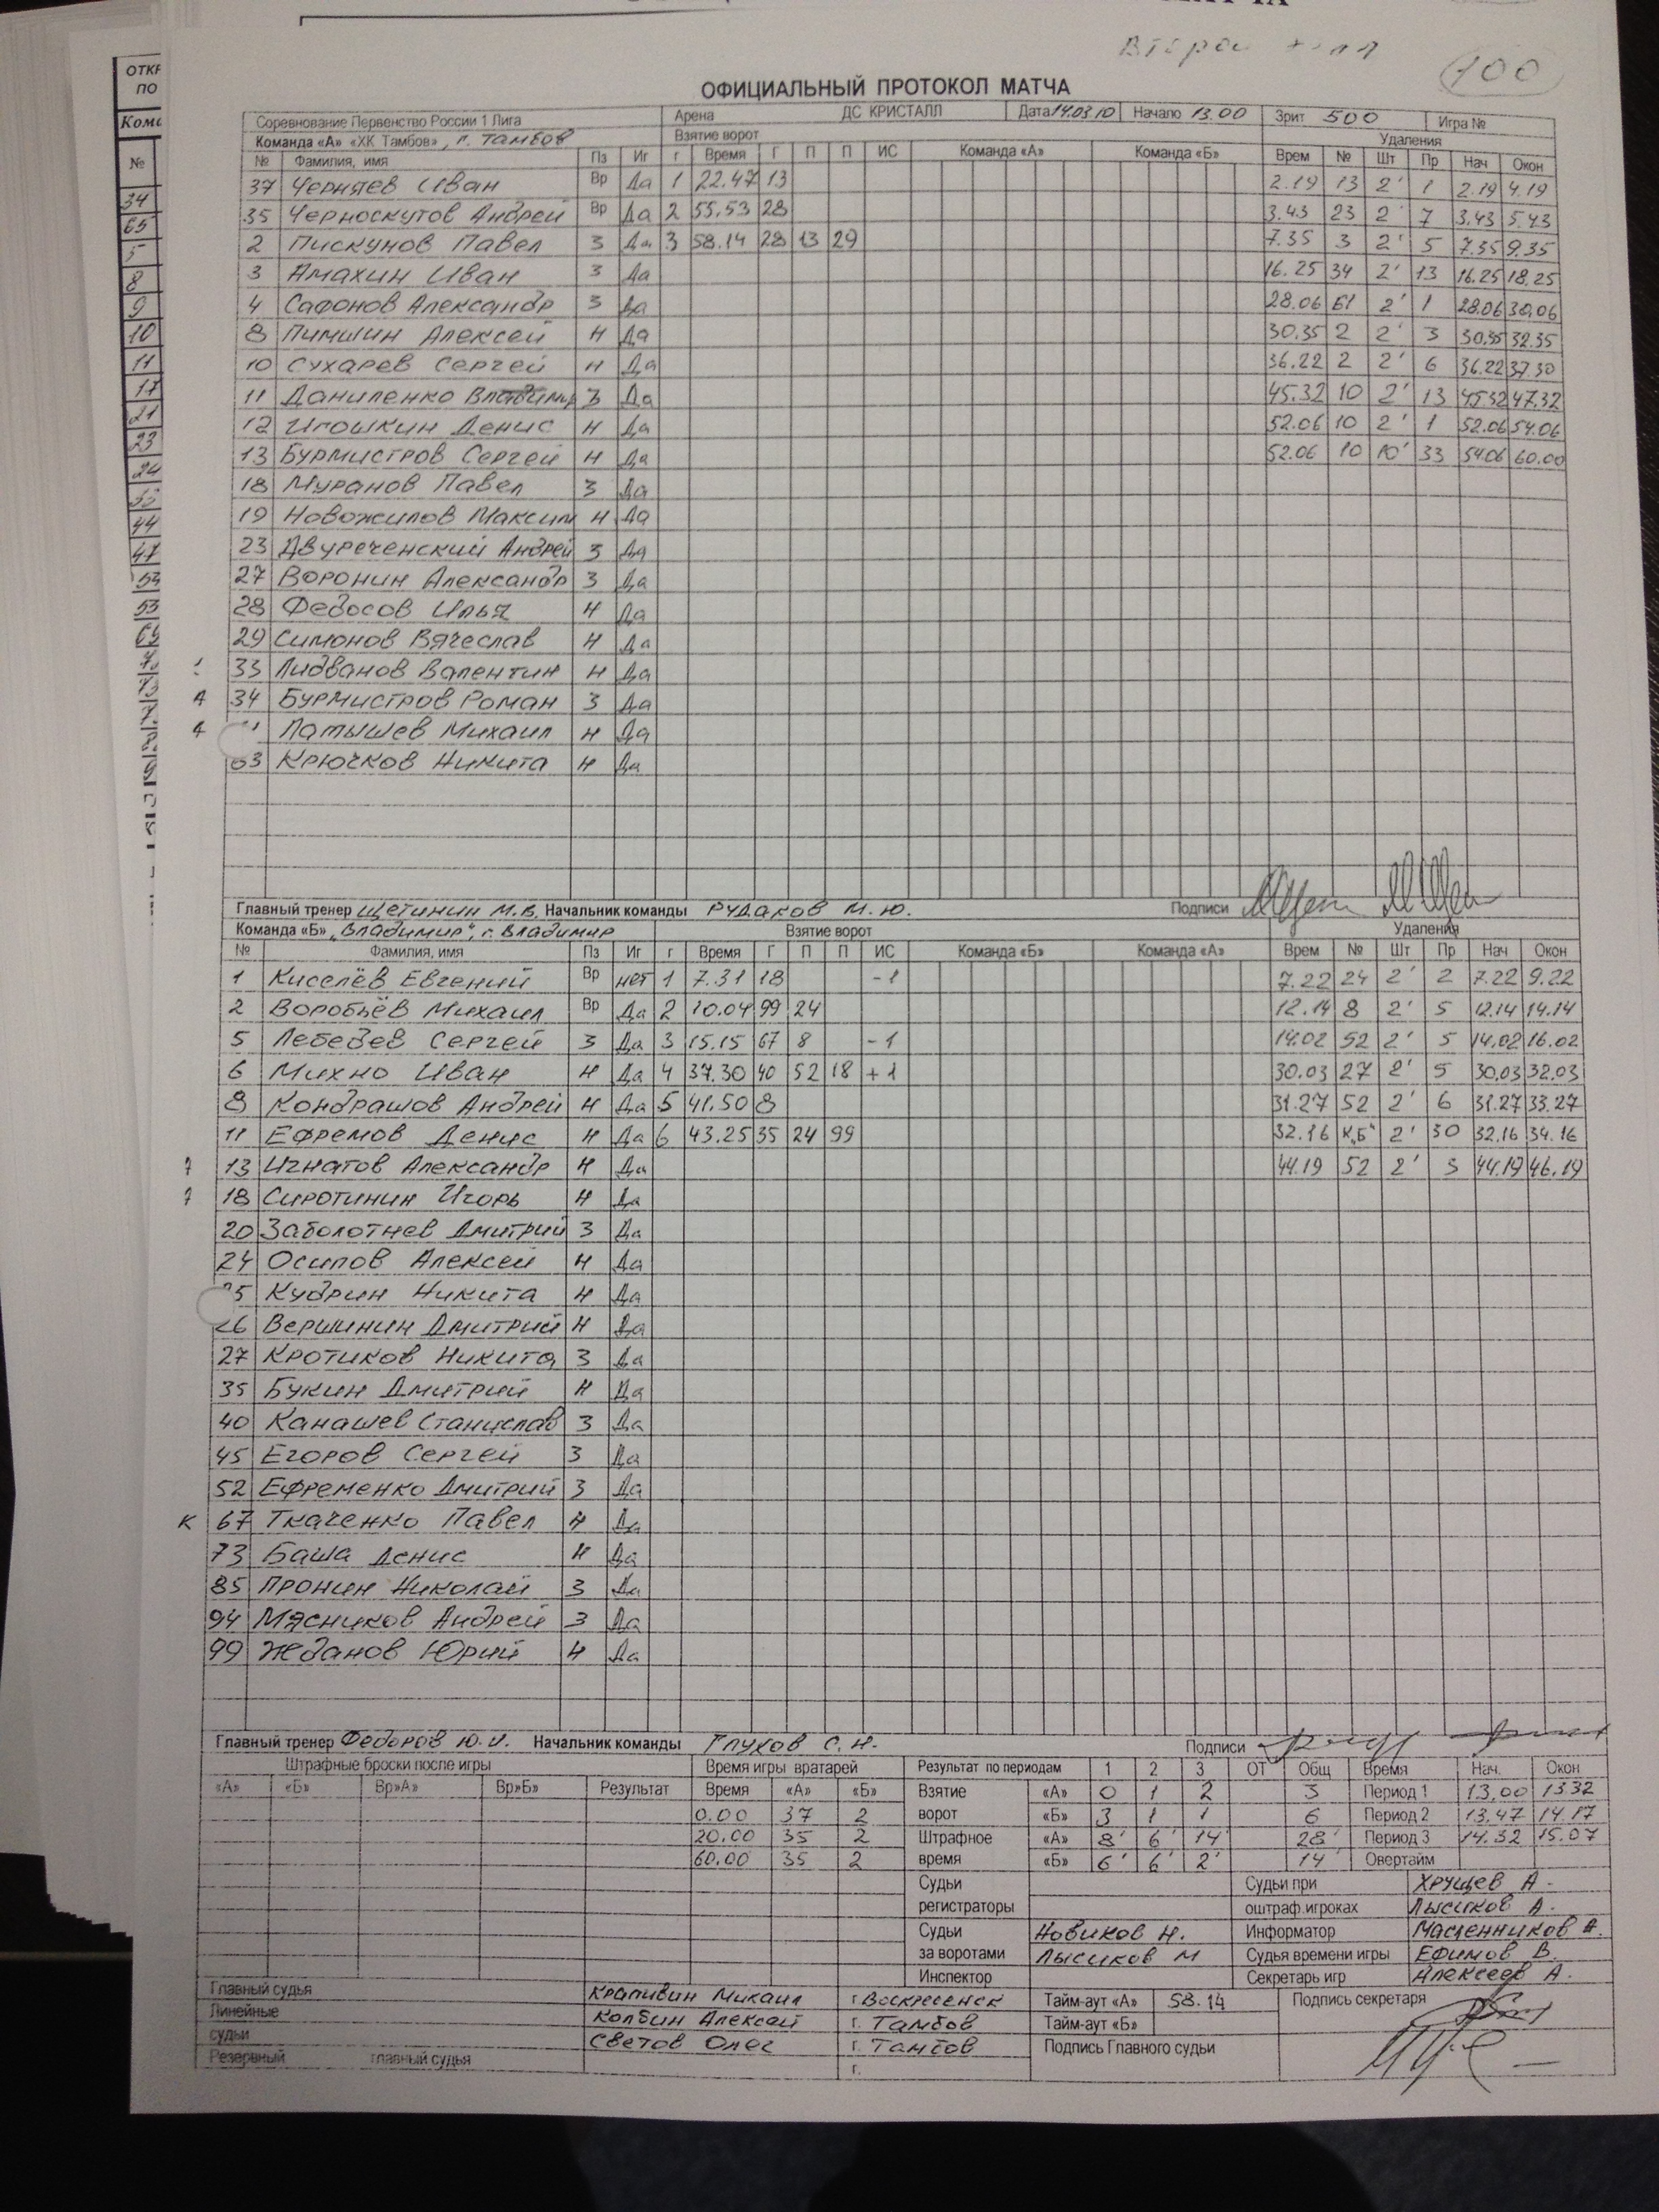 100
ОФИЦИАЛЬНЫЙ ПРОТОКОЛ МАТЧА
Соревнование Первенство России 1 Лига Арена ДС КРИСТАЛЛ Дата 14.03.10 Начало 13.00 Зрит 500 Игра №
Команда «А» «ХК Тамбов», г. Тамбов Взятие ворот Удаления
№ Фамилия, имя Пз Иг г Время Г П П ИС Команда «А» Команда «Б» Врем № Шт Пр Нач Окон
37 Черняев Иван Вр Да 1 22.47 13 2.19 13 2' 1 2.19 4.19
35 Черноскутов Андрей Вр Да 2 55.53 28 3.43 23 2' 7 3.43 5.43
2 Пискунов Павел З Да 3 58.14 28 13 29 7.35 3 2' 5 7.35 9.35
3 Амахин Иван З Да 16.25 34 2' 13 16.25 18.25
4 Сафонов Александр З Да 28.06 61 2' 1 28.06 30.06
8 Пимшин Алексей Н Да 30.35 2 2' 3 30.35 32.35
10 Сухарев Сергей Н Да 36.22 2 2' 6 36.22 37.30
11 Даниленко Владимир З Да 45.32 10 2' 13 45.32 47.32
12 Игошкин Денис Н Да 52.06 10 2' 1 52.06 54.06
13 Бурмистров Сергей Н Да 52.06 10 10' 33 54.06 60.00
18 Муранов Павел З Да
19 Новожилов Максим Н Да
23 Двуреченский Андрей З Да
27 Воронин Александр З Да
28 Федосов Илья Н Да
29 Симонов Вячеслав Н Да
33 Лидванов Валентин Н Да
А 34 Бурмистров Роман З Да
Латышев Михаил Н Да
63 Крючков Никита Н Да
Главный тренер Щетинин М.В. Начальник команды Рудаков М.Ю. Подписи
Команда «Б» „Владимир", г. Владимир Взятие ворот Удаления
№ Фамилия, имя Пз Иг г Время Г П П ИС Команда «Б» Команда «А» Врем № Шт Пр Нач Окон
1 Киселёв Евгений Вр нет 1 7.31 18 -1 7.22 24 2' 2 7.22 9.22
2 Воробьёв Михаил Вр Да 2 10.04 99 24 12.14 8 2' 5 12.14 14.14
5 Лебедев Сергей З Да 3 15.15 67 8 -1 14.02 52 2' 5 14.02 16.02
6 Михно Иван Н Да 4 37.30 40 52 18 +1 30.03 27 2' 5 30.03 32.03
8 Кондрашов Андрей Н Да 5 41.50 8 31.27 52 2' 6 31.27 33.27
11 Ефремов Денис Н Да 6 43.25 35 24 99 32.16 К„Б" 2' 30 32.16 34.16
13 Игнатов Александр Н Да 44.19 52 2' 5 44.19 46.19
18 Сиротинин Игорь Н Да
20 Заболотнев Дмитрий З Да
24 Осипов Алексей Н Да
25 Кудрин Никита Н Да
26 Вершинин Дмитрий Н Да
27 Кротиков Никита З Да
35 Букин Дмитрий Н Да
40 Канашев Станислав З Да
45 Егоров Сергей З Да
52 Ефременко Дмитрий З Да
К 67 Ткаченко Павел Н Да
73 Баша Денис Н Да
85 Пронин Николай З Да
94 Мясников Андрей З Да
99 Жданов Юрий Н Да
Главный тренер Федоров Ю.И. Начальник команды Глухов С.Н. Подписи
Штрафные броски после игры Время игры вратарей Результат по периодам 1 2 3 ОТ Общ Время Нач. Окон
«А» «Б» Вр»А» Вр»Б» Результат Время «А» «Б» Взятие «А» 0 1 2 3 Период 1 13.00 13.32
0.00 37 2 ворот «Б» 3 1 1 6 Период 2 13.47 14.17
20.00 35 2 Штрафное «А» 8' 6' 14' 28' Период 3 14.32 15.07
60.00 35 2 время «Б» 6' 6' 2' 14' Овертайм
Судьи Судьи при Хрущев А.
регистраторы оштраф.игроках Лысиков А.
Судьи Новиков Н. Информатор Масленников А.
за воротами Лысиков М Судья времени игры Ефимов В.
Инспектор Секретарь игр Алексеев А.
Главный судья Крапивин Михаил г. Воскресенск Тайм-аут «А» 58.14 Подпись секретаря
Линейные Колбин Алексей г. Тамбов Тайм-аут «Б»
судьи Светов Олег г. Тамбов Подпись Главного судьи
Резервный главный судья г.